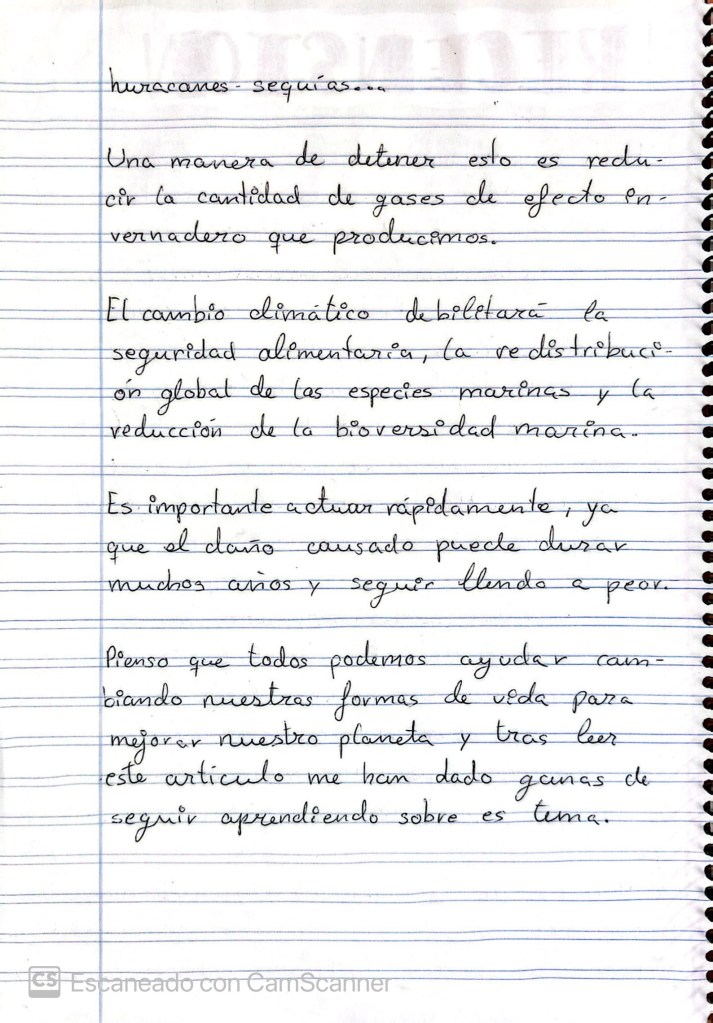 huracanes - sequías...
Una manera de detener esto es redu-
cir la cantidad de gases de efecto in-
vernadero que producimos.
El cambio climático debilitará la
seguridad alimentaria, la redistribuci-
ón global de las especies marinas y la
reducción de la bioversidad marina.
Es importante actuar rápidamente, ya
que el daño causado puede durar
muchos años y seguir llendo a peor.
Pienso que todos podemos ayudar cam-
biando nuestras formas de vida para
mejorar nuestro planeta y tras leer
este artículo me han dado ganas de
seguir aprendiendo sobre es tema.
CS Escaneado con CamScanner